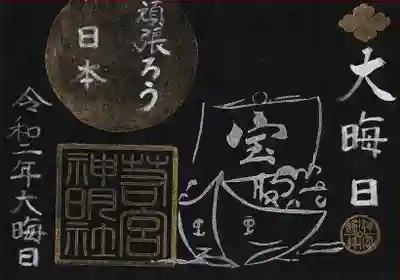 大晦日
頑張ろう
日本
宝
苔宮
神明社
令和二年大晦日